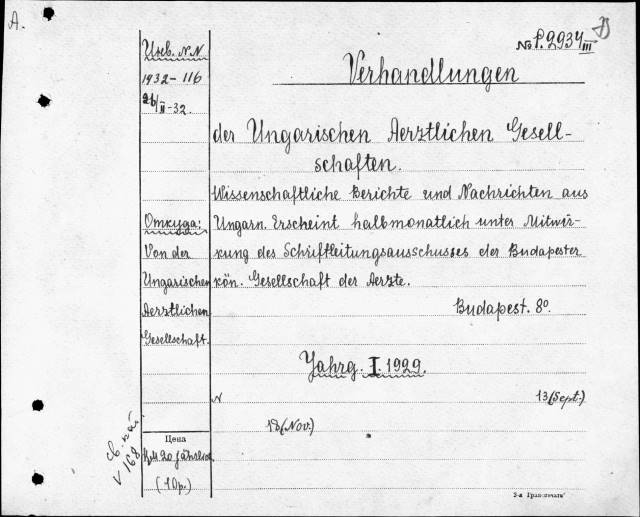 A.
№ P.2934 III
Инв. N.N
1932-116
26/II-32.
Verhandlungen
der Ungarischen Aerztlichen Gesell-
schaften.
Wissenschaftliche Berichte und Nachrichten aus
Ungarn. Erscheint halbmonatlich unter Mitwir-
kung des Schriftleitungsausschusses der Budapester
kön. Gesellschaft der Aerzte.
Budapest. 8º.
Откуда:
Von der
Ungarischen
Aerztlichen
Gesellschaft.
Jahrg. I. 1929.
N 13(Sept.)
18(Nov.)
Цена
20 jährlich
(10р.)
V 168
3-я Гриппечать